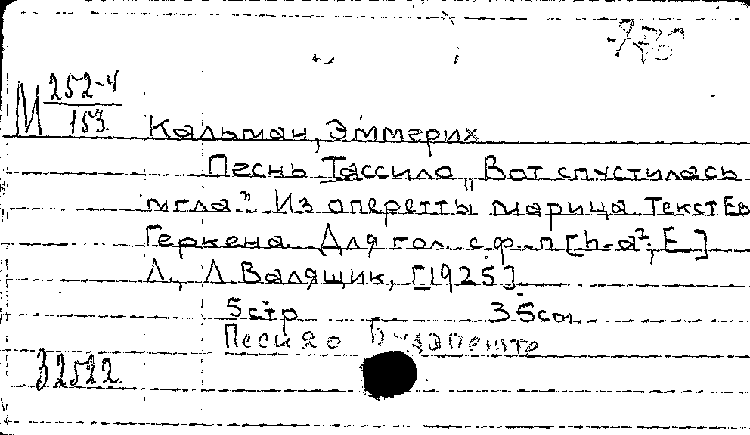 М 252-4
153
Кальман, Эммерих
Песнь Тассило „Вот спустилась
мгла". Из оперетты Марица. Текст Ев
Геркена. Для гол. с ф-п [h-a², E]
Л., Л. Валящик, [1925].
5 стр 35 cm
Песня о Будапеште
32522